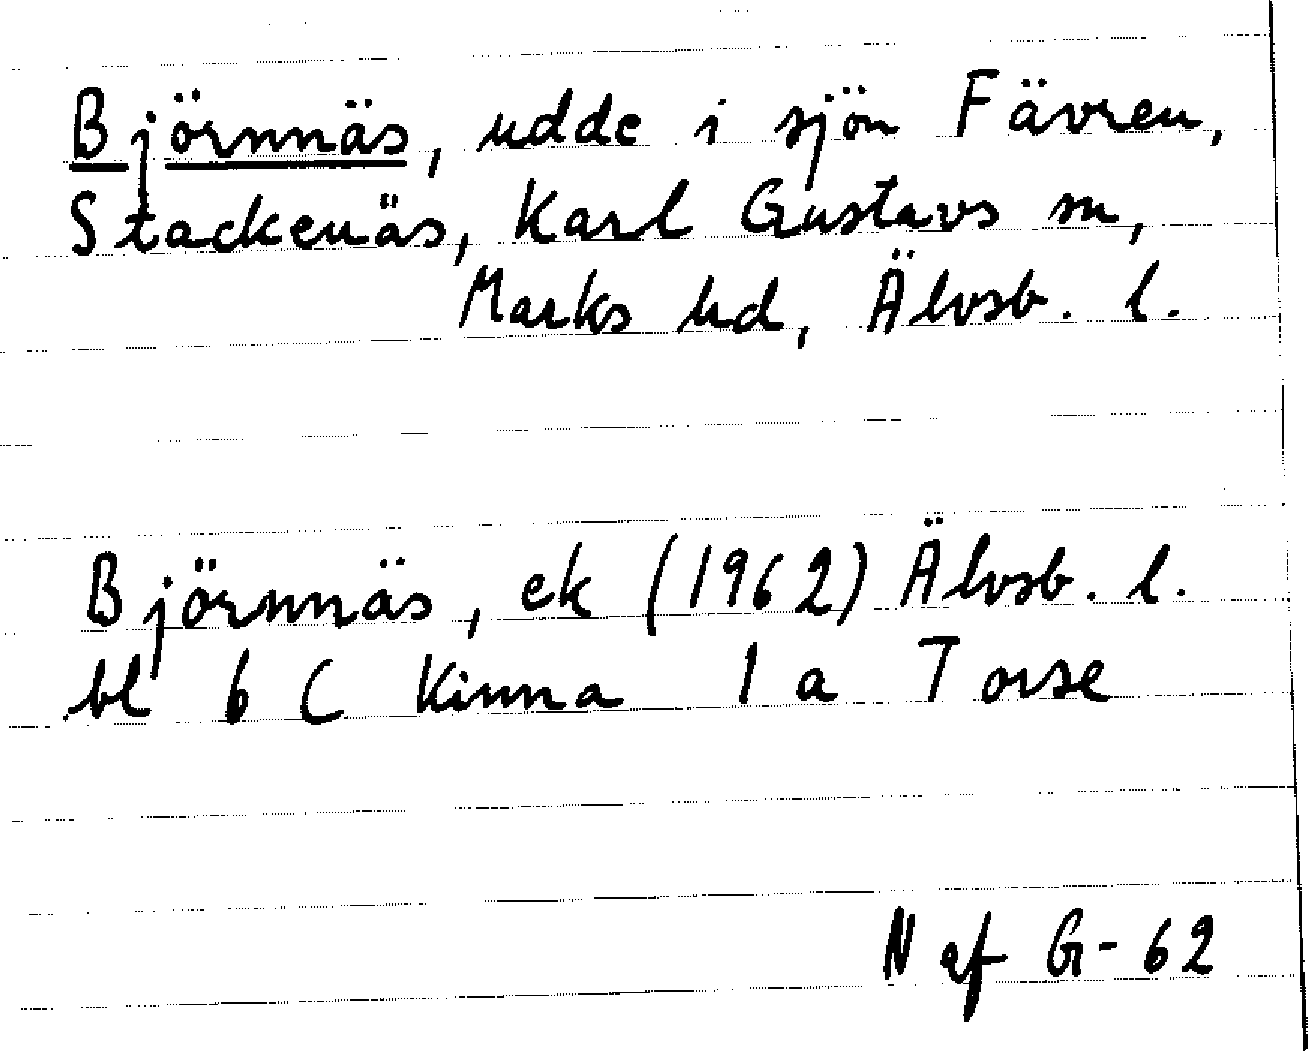 Björnnäs, udde i sjön Fävren,
Stackenäs, Karl Gustavs sn,
Marks hd, Älvsb. l.
Björnnäs, ek (1962) Älvsb. l.
bl 6 C Kinna 1 a Torse
N af G-62